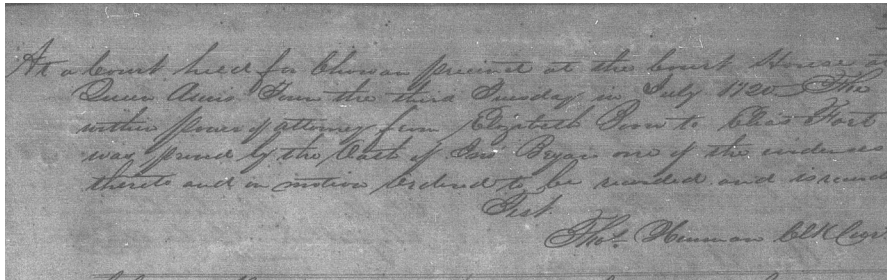 At a Court held for Chowan precinct at the Court House at
Queen Anns Town the third Tuesday in July 1720 The
within power of attorney from Elizabeth to Elias Fort
was proved by the Oath of Bryan one of the evidences
thereto and on motion ordered to be recorded and is
Test
Thos. Henman Clk